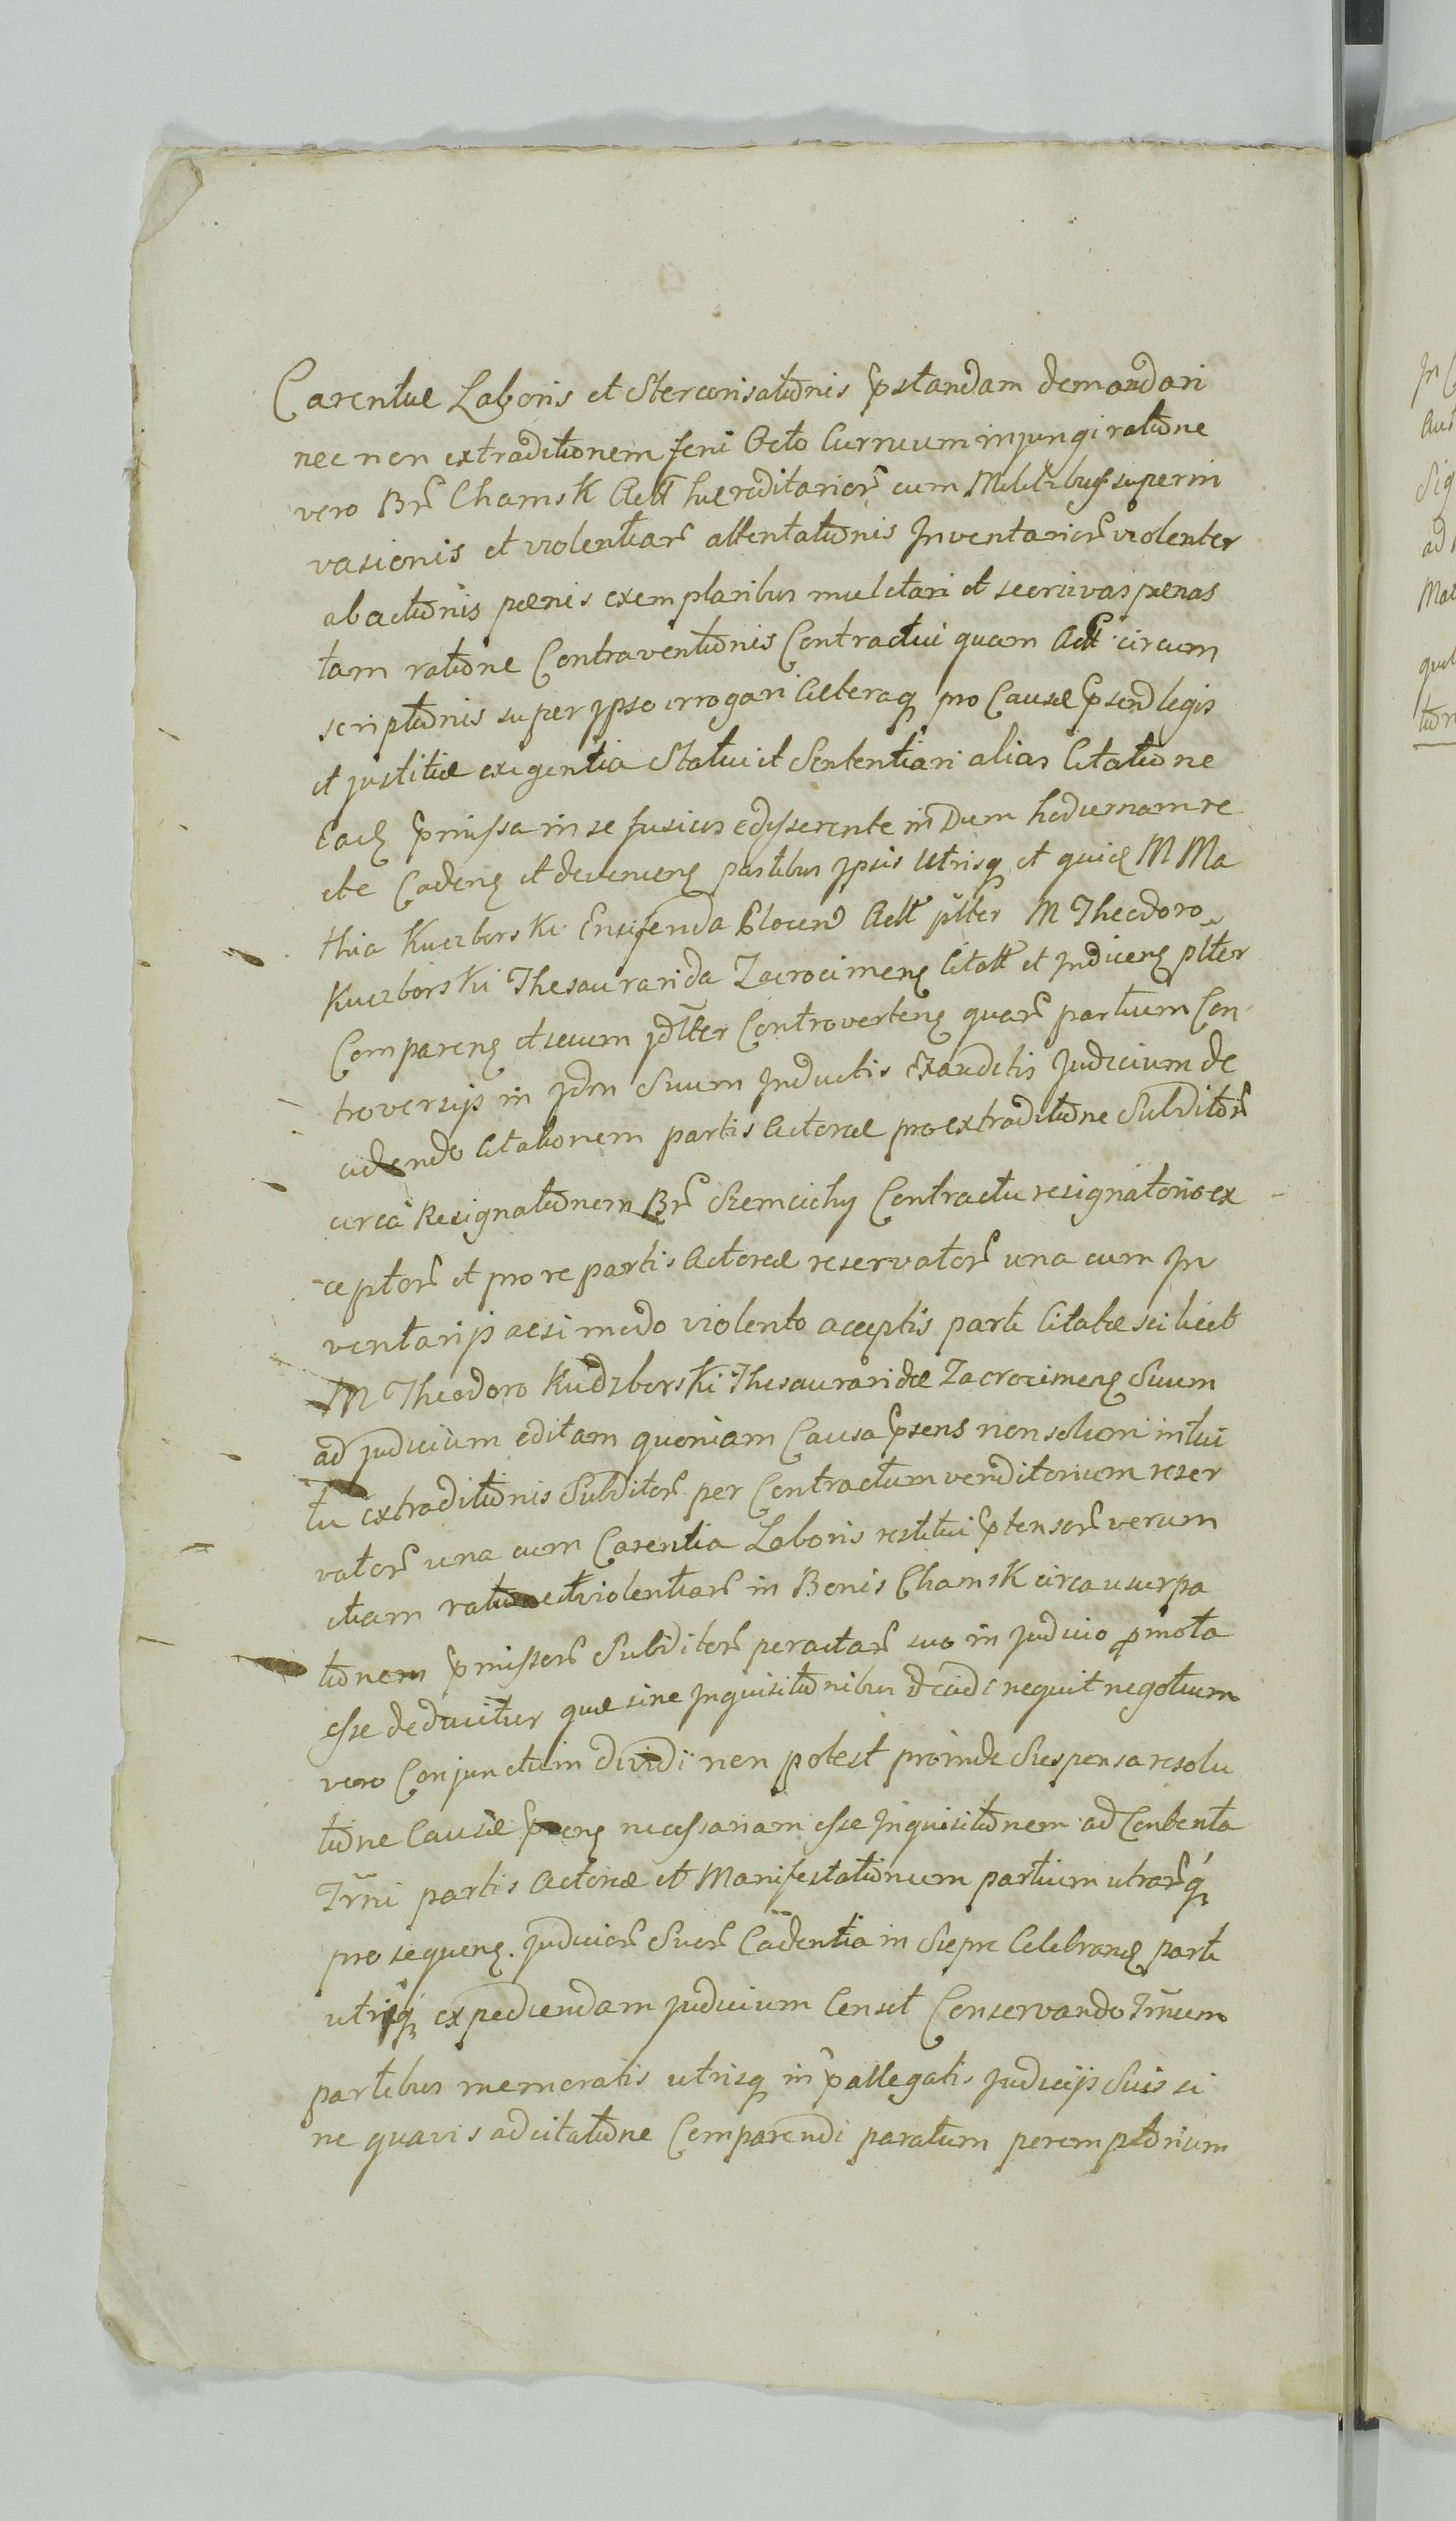 Carentiæ Laboris et Stercorisationis pstandam demandari
nec non extraditionem feni Octo Curruum injungi ratione
vero Br̃ Chamsk Actt hæreditarior̃ cum Militibus superin
vasionis et violentiar̃ attentationis Inventarior̃ violenter
abactionis pænis exemplaribus mulctari et secuivas pænas
tam ratione Contraventionis Contractui quam Actt circum
scriptionis super ipso irrogari Cæteraq pro Causæ psend legis
et justitiæ exigentia Statui et Sententiari alias Citatione
Ead pmissa in se fusius edisserente in Dum hodiernam re
cte Cadeñ et deveneñ partibus ipsis Utrisq et quid M Ma
thia Kuczborski Ensiferida Plocen Actt plter M Theodoro
Kuczborski Thesaurarida Zacrocimeñ Citatt et Judiceñ plter
Compareñ et secum jdlter Controverteñ quar̃ partium Con
troversijs in jdm Suum Inductis Exauditis Judicium de
cidendo Citationem partis Actoreæ pro extraditione Subditor̃
circa Resignationem Br̃ Szemcichy Contractu resignatorio ex
ceptor̃ et pro re partis Actoreæ reservator̃ una cum In
ventarijs acsi modo violento acceptis parte Citatæ scilicet
M Theodoro Kudzborski Thesauraridæ Zacrocimeñ Suum
ad judicium editam quoniam Causa psens non solum intui
tu extraditionis Subditor̃ per Contractum venditorium reser
vator̃ una cum Carentia Laboris restitui ptensor̃ verum
etiam ratione violentiar̃ in Bonis Chamsk circa usurpa
tionem pmissor̃ Subditor̃ peractar̃ suo in judicio pmota
esse deducitur quæ sine Inquisitionibus decidi nequit negotium
vero Conjunctim dividi non potest proinde Suspensa resolu
tione Causæ necessariam esse Inquisitionem ad Contenta
Trm̃ni partis Actoreæ et Manifestationum partium utrar̃q
pro sequeñ. Judicior̃ Suor̃ Cadentia in Siepre Celebrand parte
utriq expediendam judicium Censet Conservando Trm̃num
partibus memoratis utrisq in pallegatis Judicijs Suis si
ne quavis adcitatione Comparendi paratum peremptorium